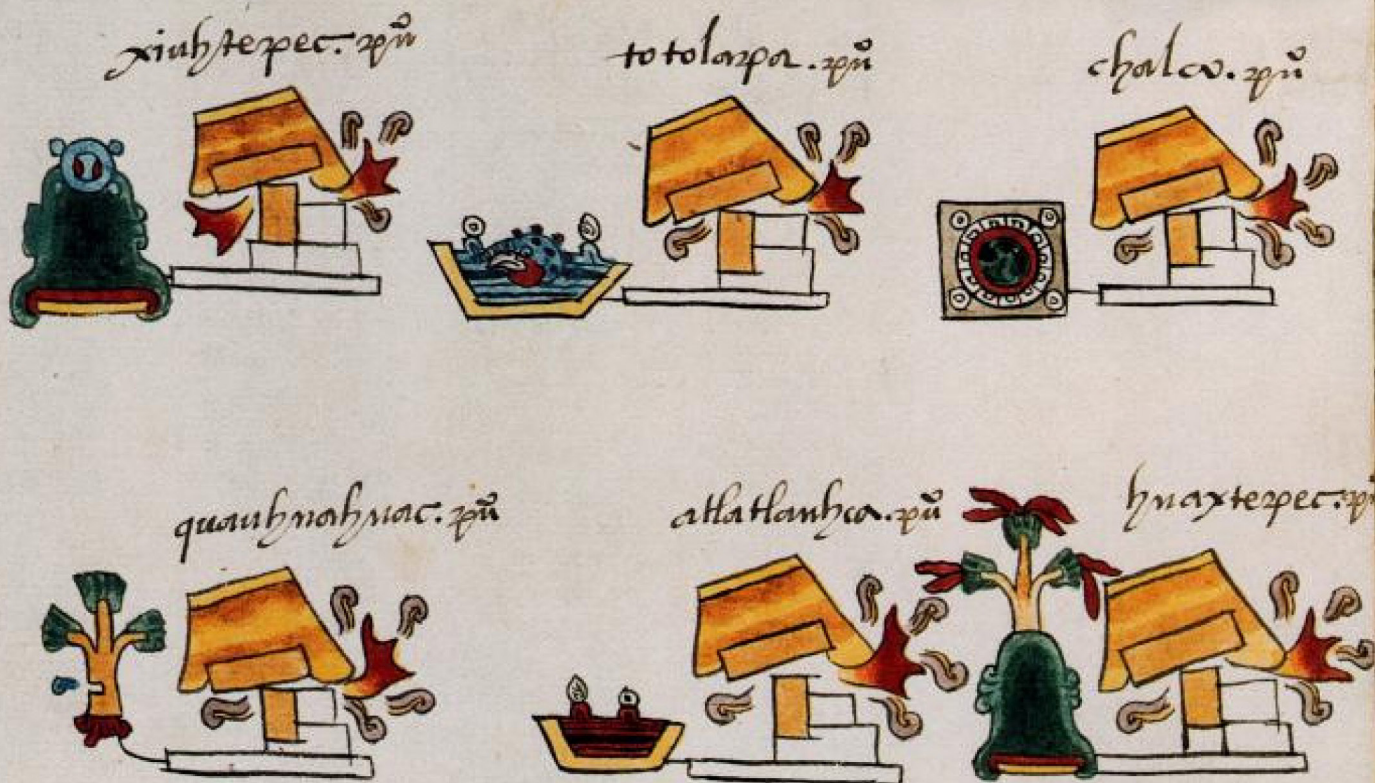 xiuhtepec. pũo
totolapa. pũo
chalco. pũo
quauhnahuac. pũo
atlatlauhca. pũo
huaxtepec. pũ